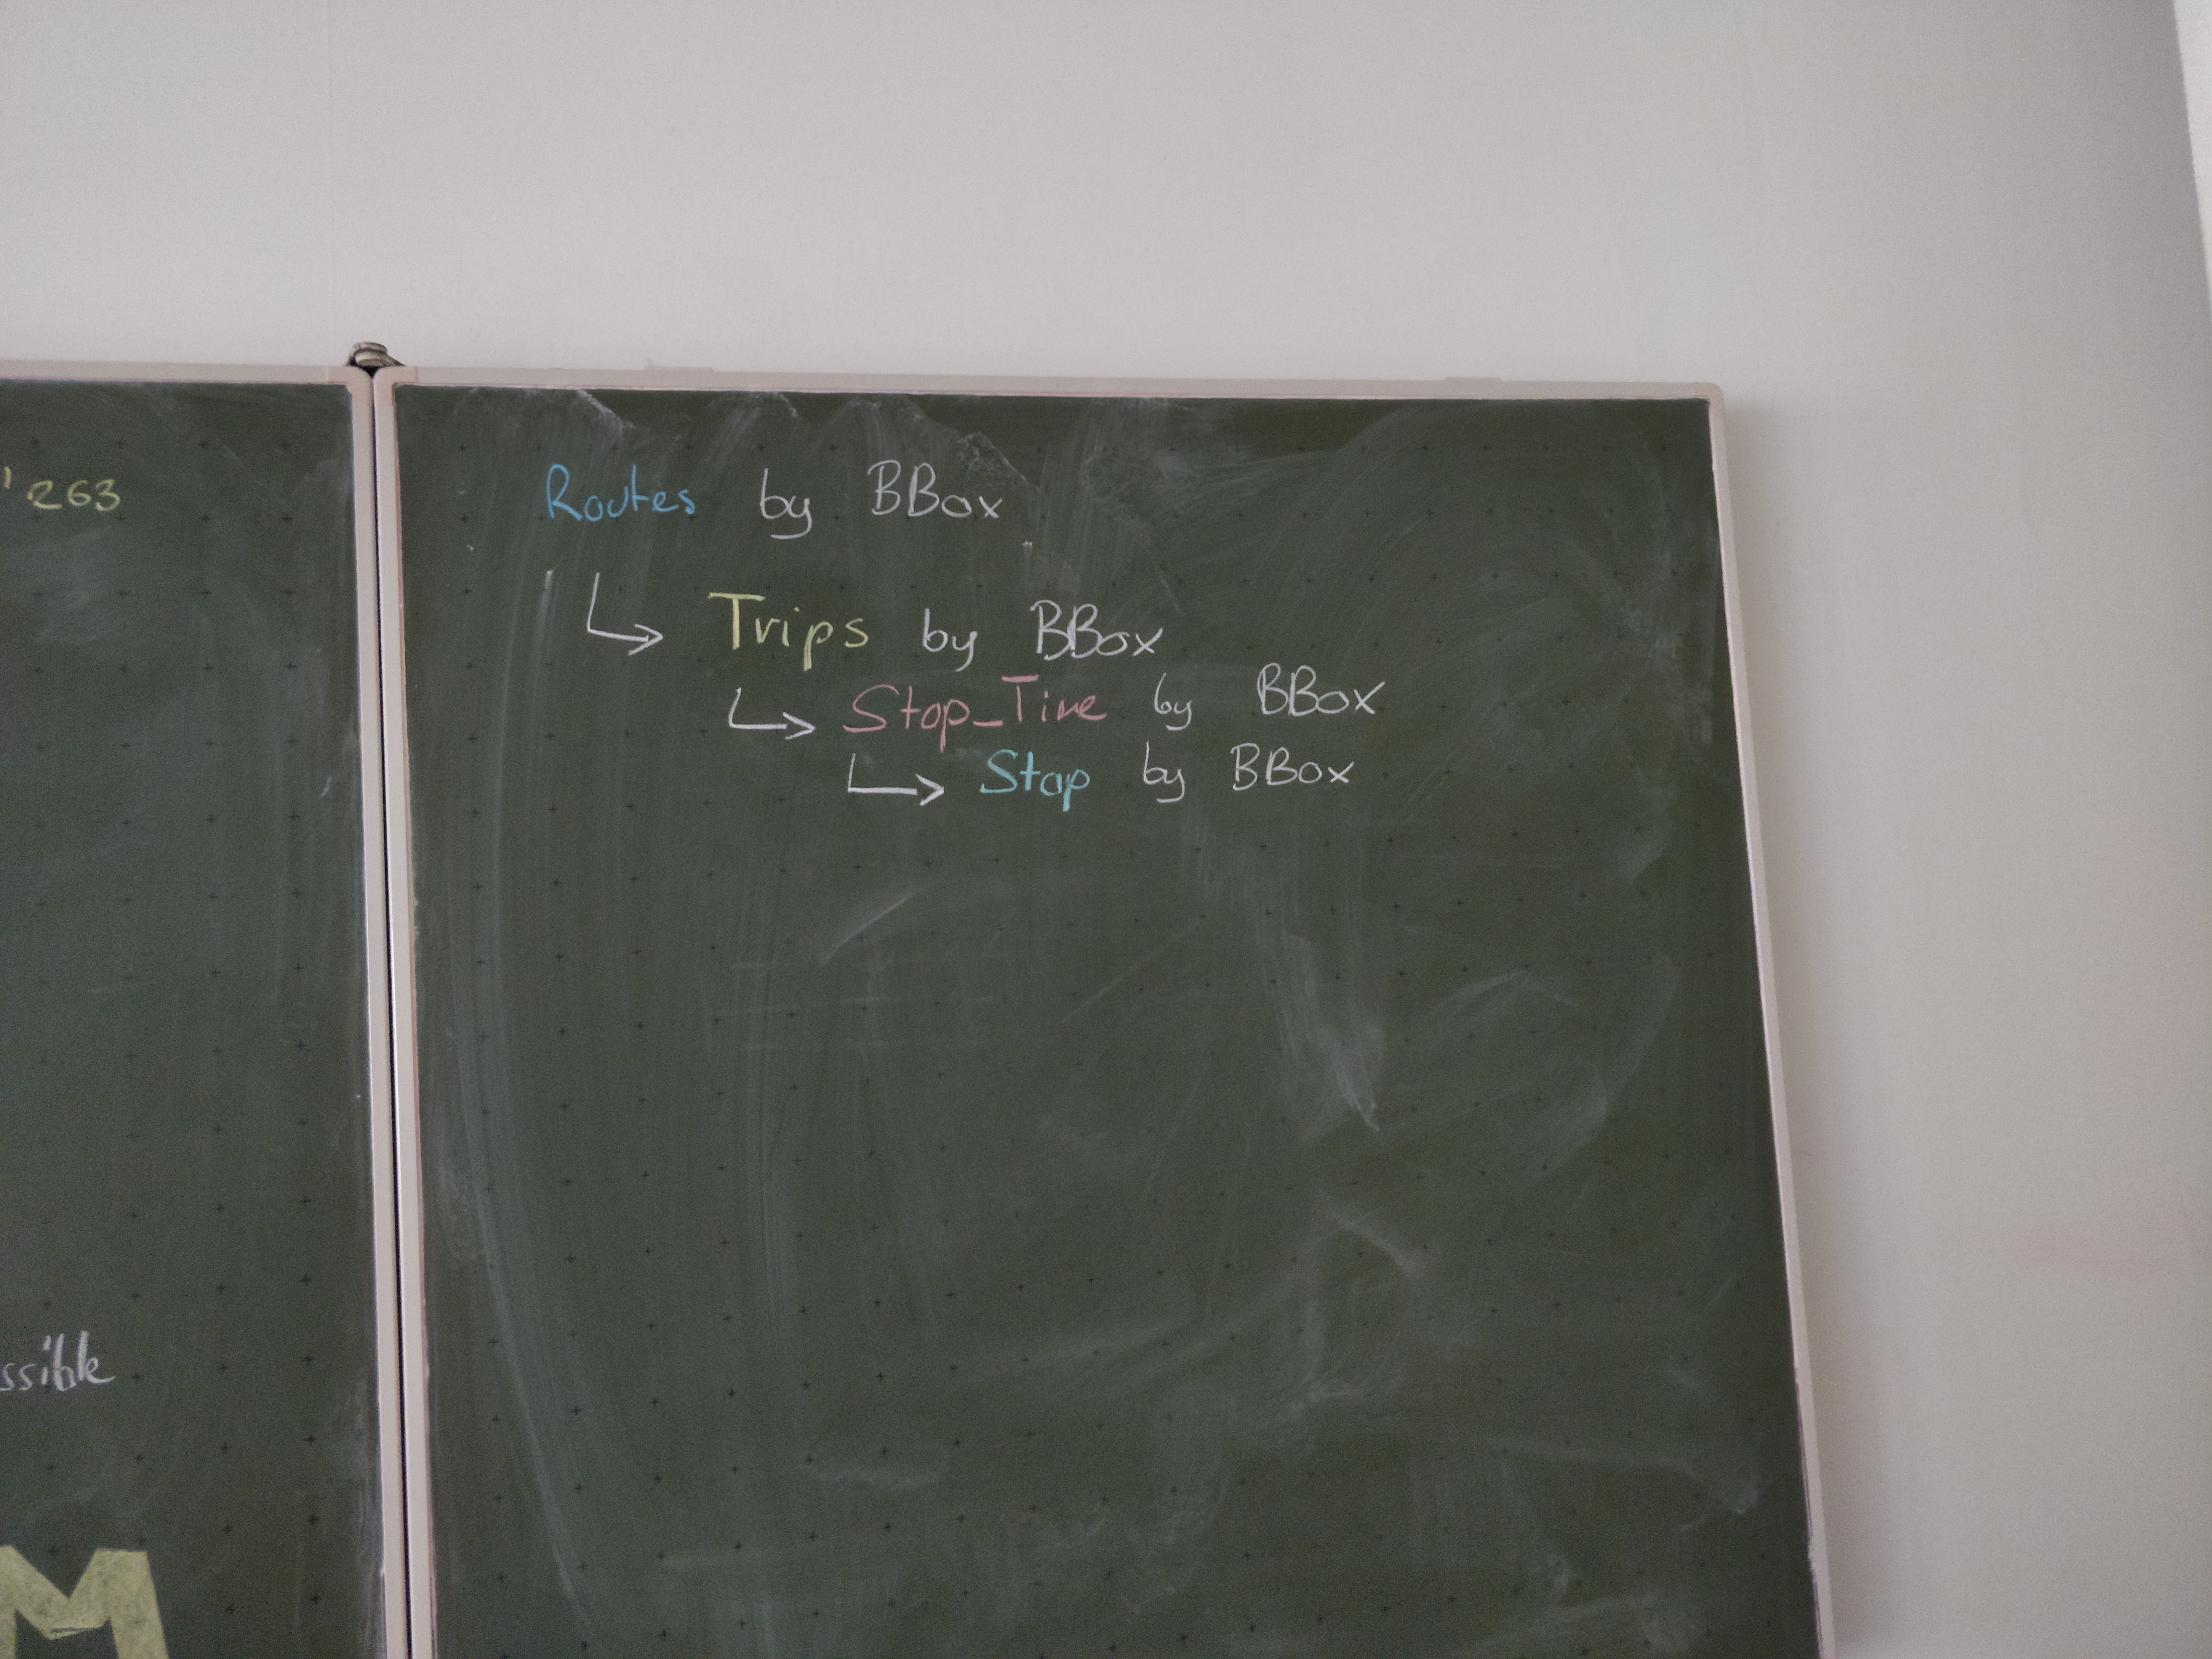 ' 263
ssible
M
Routes by BBox
↳ Trips by BBox
↳ Stop_Time by BBox
↳ Stop by BBox